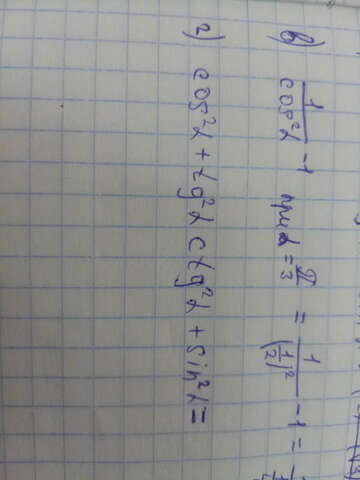 в) 1/cos²α -1 при α = π/3 = 1/(1/2)² - 1 =
г) cos²α + tg²α ctg²α + sin²α =